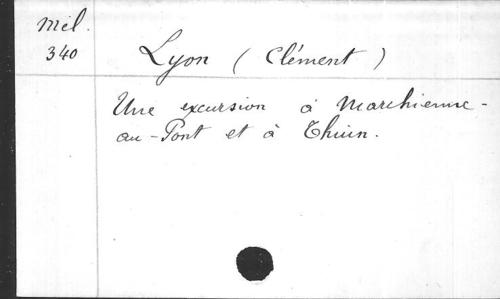 Mél.
340
Lyon (Clément)
Une excursion à Marchienne-
au-Pont et à Thuin.